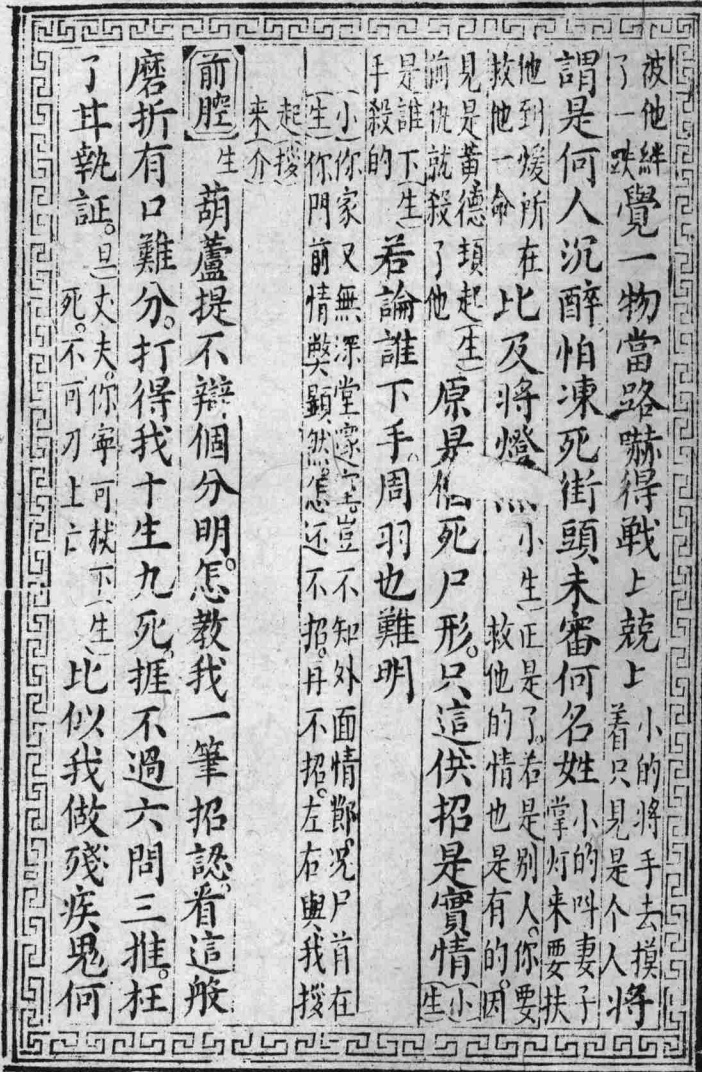 被他絆了一跌覺一物當路嚇得戰上兢上小的將手去摸着只見是个人將
謂是何人沉醉怕凍死街頭未審何名姓小的呌妻子掌灯来要扶
他到煖所在救他一命比及將燈小生正是了若是別人你要救他的情也是有的因
見是黃德頭起前仇就殺了他生原是個死尸形只這供招是實情小生
是誰下手殺的生若論誰下手周羽也難明
小你家又無深堂邃宅豈不知外面情鄭况尸首在
生你門前情獘顯然怎还不招再不招左右與我拶
起来拶介
前腔生葫蘆提不辯個分明怎教我一筆招認看這般
磨折有口難分打得我十生九死捱不過六問三推枉
了甘執証旦丈夫你寧可杖下死不可刃上亡生比似我做殘疾鬼何